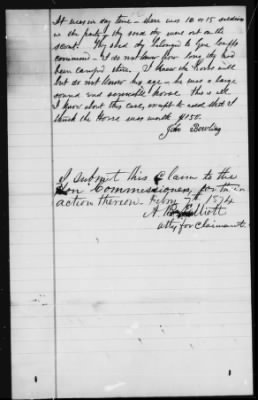 It was in day time - there was 10 or 15 soldiers
in the party - they said they were out on the
scout. They said they belonged to Gen
command - I do not know how long they had
been camped there. I knew the horse well
but do not know his age - he was a large
sound and serviceable horse this is all
I know about this case, except to add that I
think the horse was worth $150.
John Bowling
I submit this claim to the
Hon Commissioners, for their
action thereon. Feby 7th 1874
Elliott
atty for Claimant